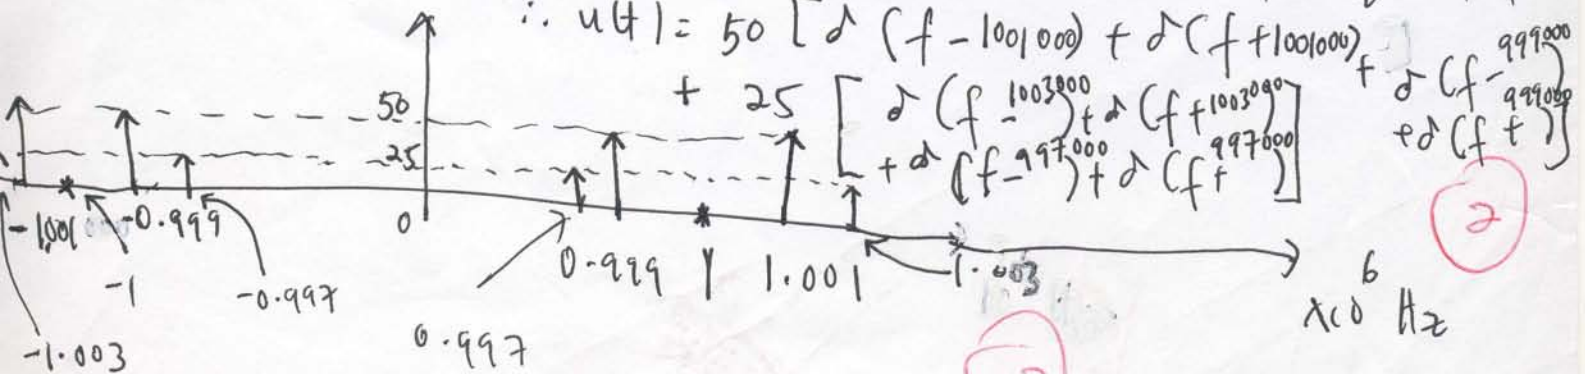 ∴ u(t) = 50 [ δ (f - 1001000) + δ (f + 1001000) + δ (f - 999000) + δ (f + 999000) ]
+ 25 [ δ (f - 1003000) + δ (f + 1003000)
+ δ (f - 997000) + δ (f + 997000) ]
2
50
25
0
-1.001
-0.999
-1
-0.997
-1.003
0.997
0.999
1
1.001
1.003
x10⁶ Hz